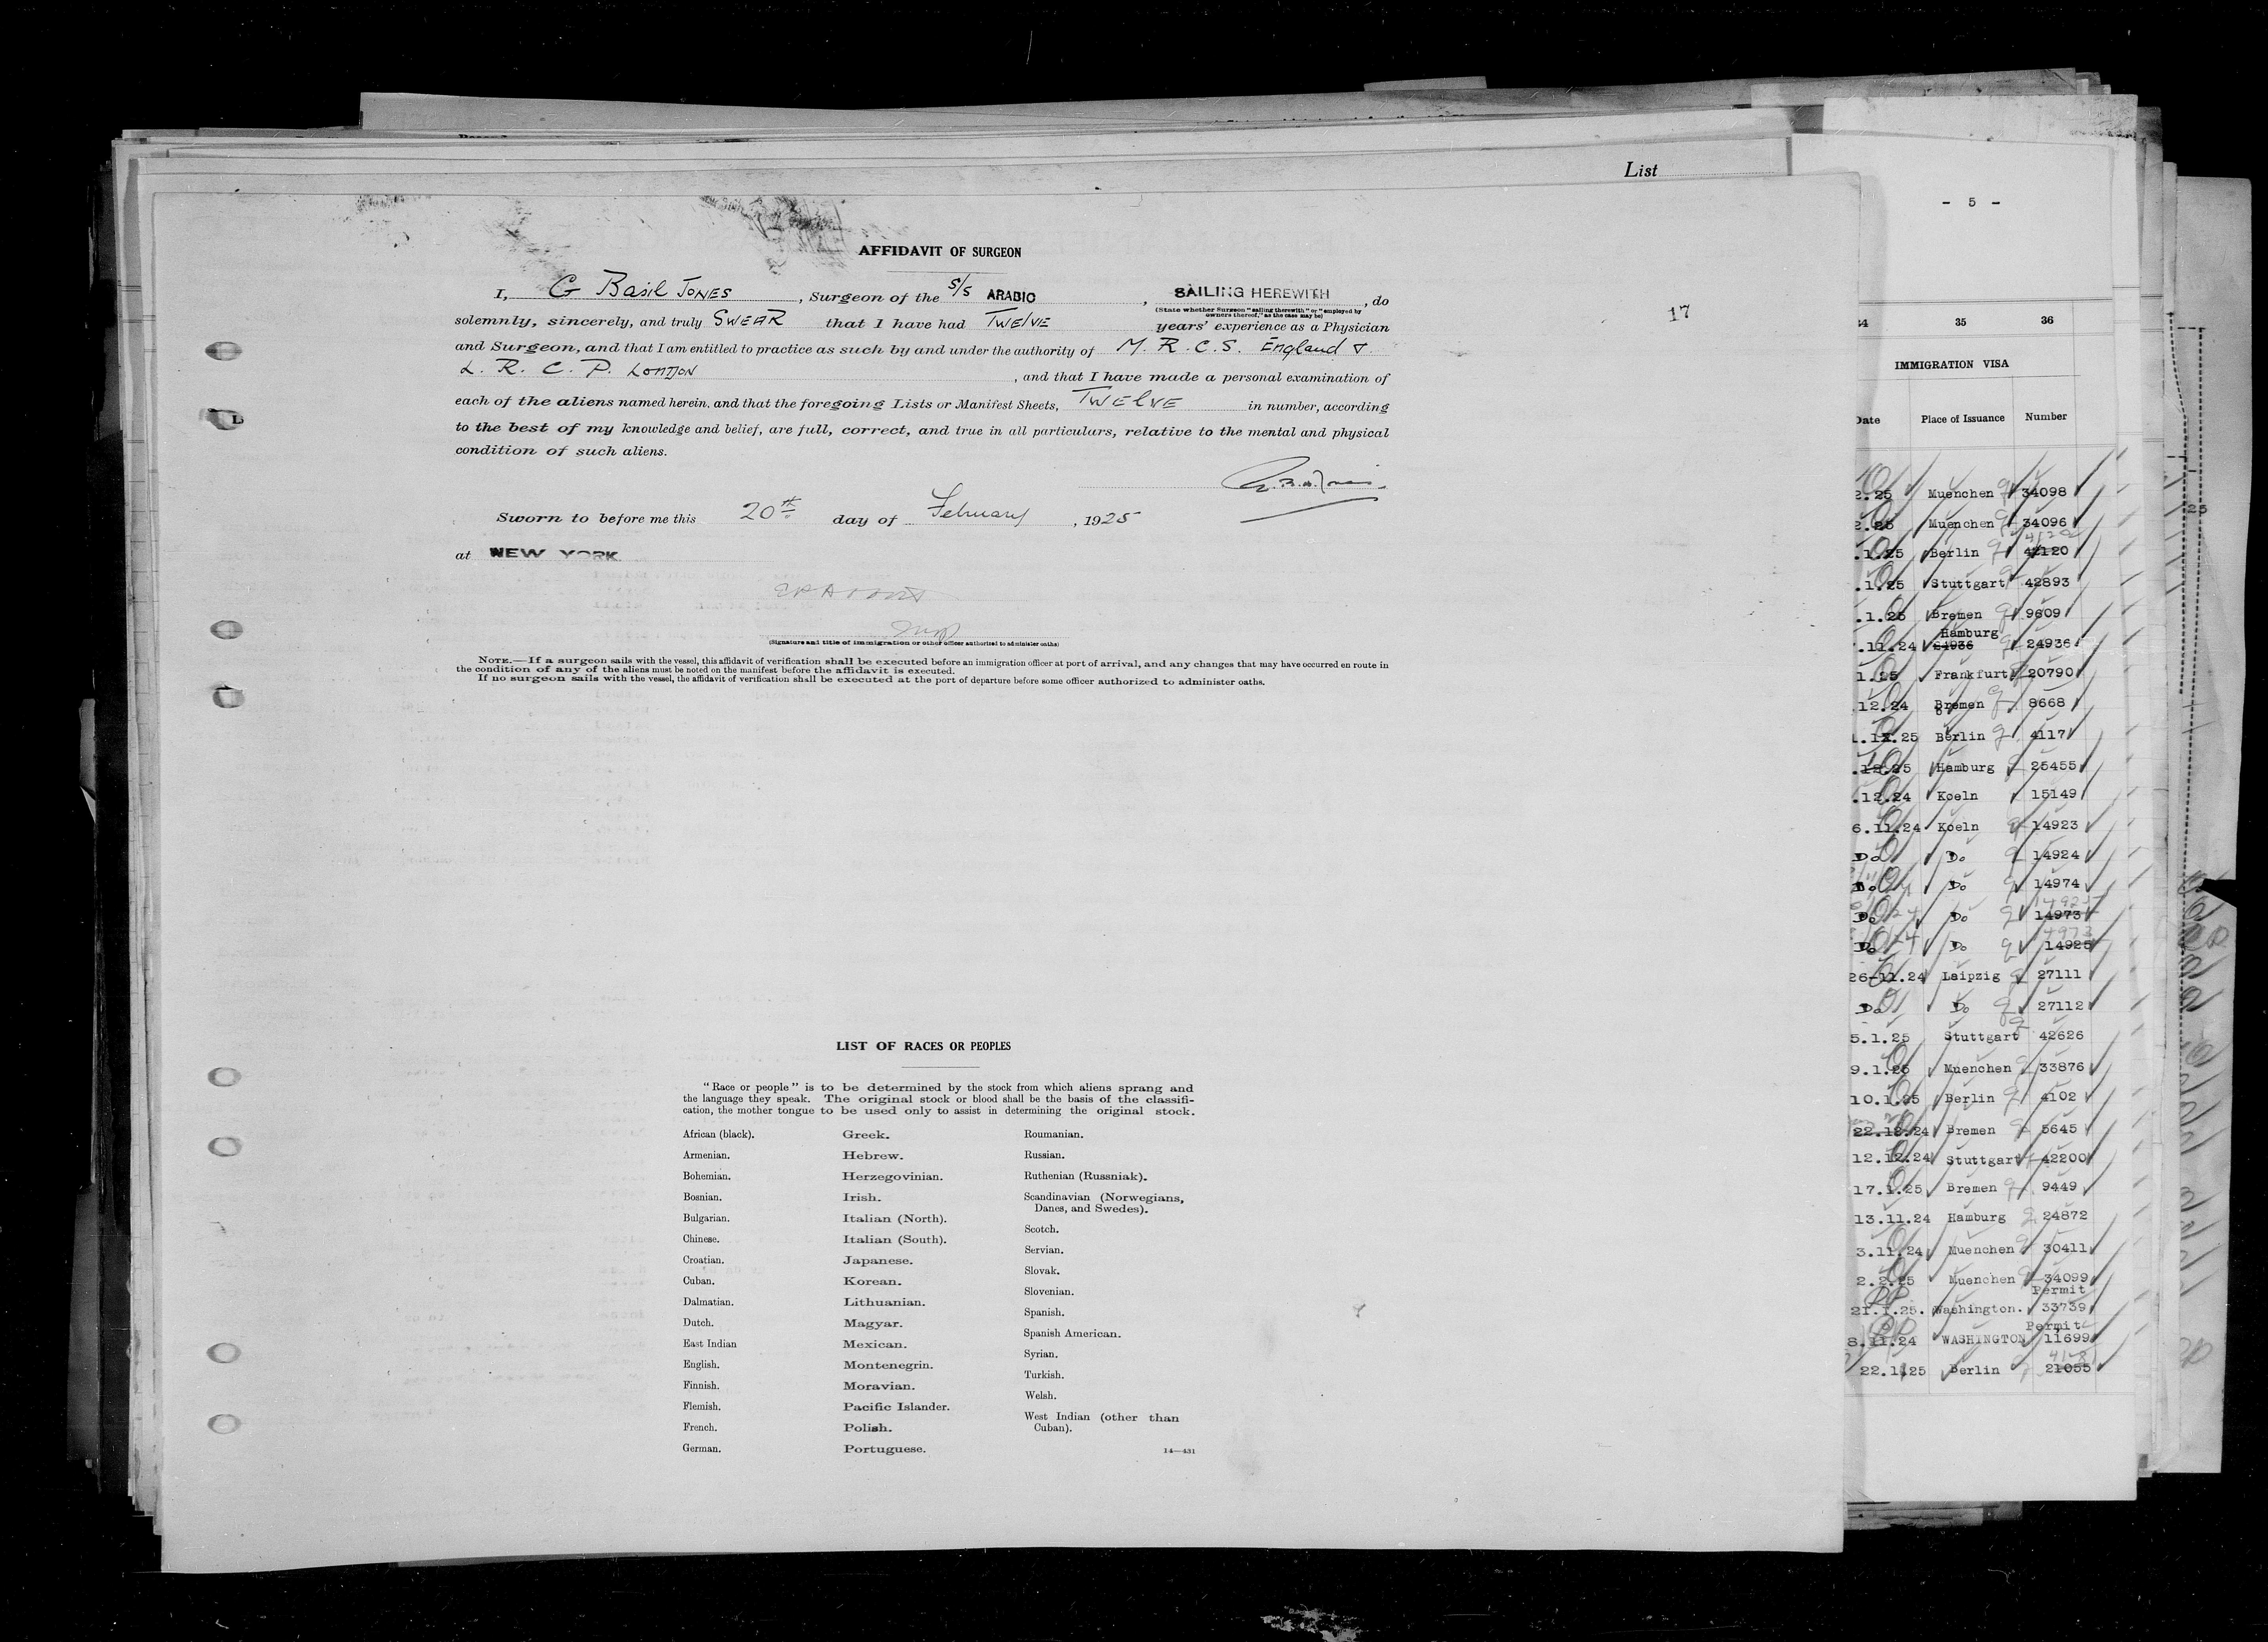 List
- 5 -
17
AFFIDAVIT OF SURGEON
I, G Basil Jones, Surgeon of the S/S ARABIC, SAILING HEREWITH, do
(State whether Surgeon "sailing therewith" or "employed by
owners thereof," as the case may be)
solemnly, sincerely, and truly SWEAR that I have had TWELVE years' experience as a Physician
and Surgeon, and that I am entitled to practice as such by and under the authority of M. R. C. S. England &
L. R. C. P. LONDON, and that I have made a personal examination of
each of the aliens named herein, and that the foregoing Lists or Manifest Sheets, TWELVE in number, according
to the best of my knowledge and belief, are full, correct, and true in all particulars, relative to the mental and physical
condition of such aliens.
Sworn to before me this 20th day of February, 1925
at NEW YORK
(Signature and title of immigration or other officer authorized to administer oaths)
NOTE.—If a surgeon sails with the vessel, this affidavit of verification shall be executed before an immigration officer at port of arrival, and any changes that may have occurred en route in
the condition of any of the aliens must be noted on the manifest before the affidavit is executed.
If no surgeon sails with the vessel, the affidavit of verification shall be executed at the port of departure before some officer authorized to administer oaths.
LIST OF RACES OR PEOPLES
"Race or people" is to be determined by the stock from which aliens sprang and
the language they speak. The original stock or blood shall be the basis of the classifi-
cation, the mother tongue to be used only to assist in determining the original stock.
African (black).
Armenian.
Bohemian.
Bosnian.
Bulgarian.
Chinese.
Croatian.
Cuban.
Dalmatian.
Dutch.
East Indian
English.
Finnish.
Flemish.
French.
German.
Greek.
Hebrew.
Herzegovinian.
Irish.
Italian (North).
Italian (South).
Japanese.
Korean.
Lithuanian.
Magyar.
Mexican.
Montenegrin.
Moravian.
Pacific Islander.
Polish.
Portuguese.
Roumanian.
Russian.
Ruthenian (Russniak).
Scandinavian (Norwegians,
Danes, and Swedes).
Scotch.
Servian.
Slovak.
Slovenian.
Spanish.
Spanish American.
Syrian.
Turkish.
Welsh.
West Indian (other than
Cuban).
14—431
35 36
IMMIGRATION VISA
Date Place of Issuance Number
2.25 Muenchen 34098
2.25 Muenchen 34096
.1.25 Berlin 42120
.1.25 Stuttgart 42893
.1.25 Bremen 9609
Hamburg
.11.24 24936 24936
1.25 Frankfurt 20790
12.24 Bremen 8668
.25 Berlin 4117
.25 Hamburg 25455
.12.24 Koeln 15149
6.11.24 Koeln 14923
Do Do 14924
Do Do 14974
Do Do 14973
Do Do 14925
26-11.24 Leipzig 27111
Do Do 27112
5.1.25 Stuttgart 42626
9.1.25 Muenchen 33876
10.1.25 Berlin 4102
22.12.24 Bremen 5645
12.12.24 Stuttgart 42200
17.1.25 Bremen 9449
13.11.24 Hamburg 24872
3.11.24 Muenchen 30411
2.2.25 Muenchen 34099
Permit
21.1.25. Washington. 33739
Permit
8.11.24 WASHINGTON 11699
22.1.25 Berlin 21055